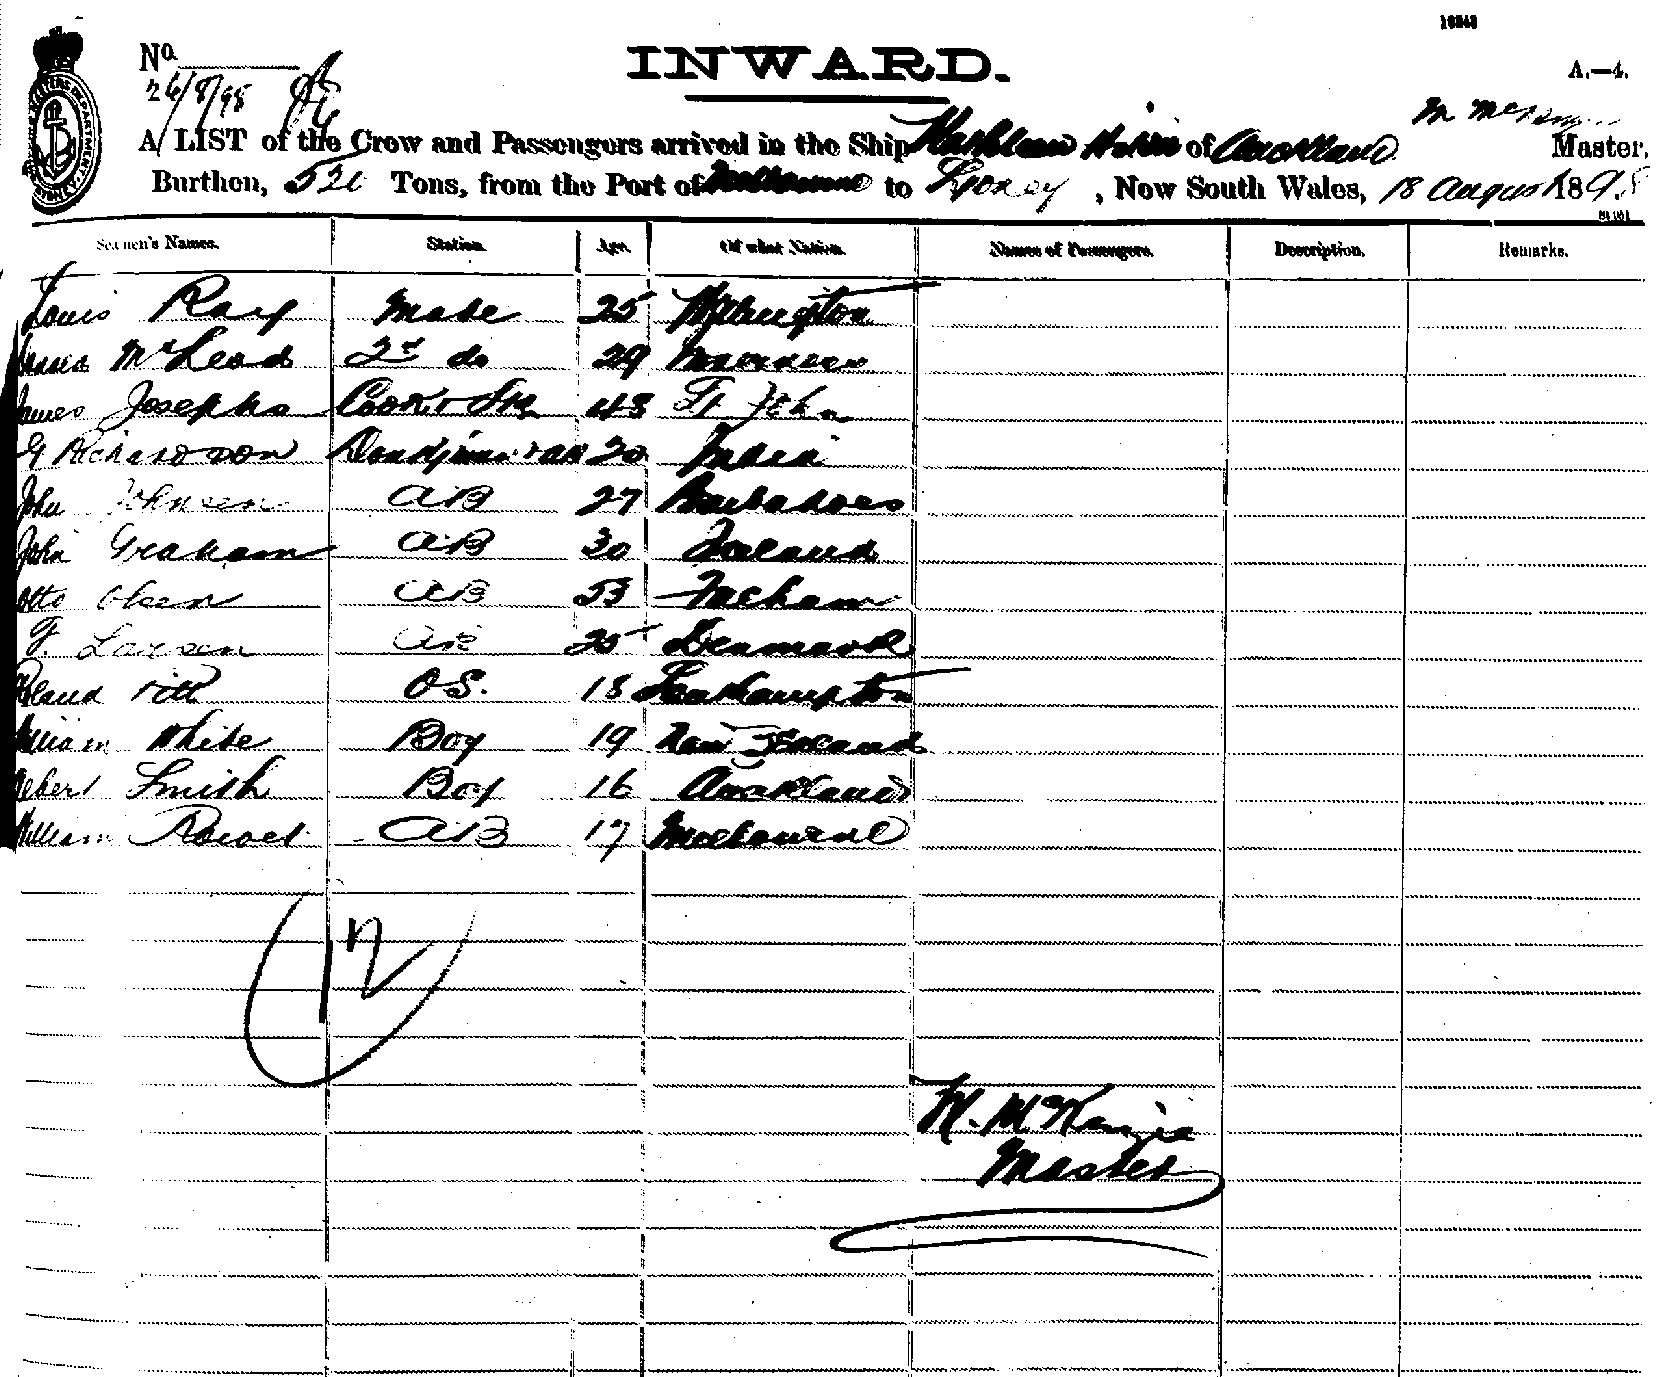 No.
INWARD.
A.—4.
26/8/98
A LIST of the Crew and Passengers arrived in the Ship Kathleen Hilda of Auckland M McKenzie Master,
Burthen, 520 Tons, from the Port of Melbourne to Sydney, New South Wales, 18 August 1898
Seamen's Names. Station. Age. Of what Nation. Names of Passengers. Description. Remarks.
Louis Ray Mate 25
McLeod 2nd do 29
James Josephs Cook & Std 43 St John
G Richardson & AB 20 India
John Johnsen AB 27 Barbadoes
John Graham AB 30 Ireland
Otto Olsen AB 53
F. Larsen AB 25 Denmark
Roland Pitt O.S. 18 Southampton
William White Boy 19 New Zealand
Albert Smith Boy 16 Auckland
William AB 17 Melbourne
12
M. McKenzie
Master